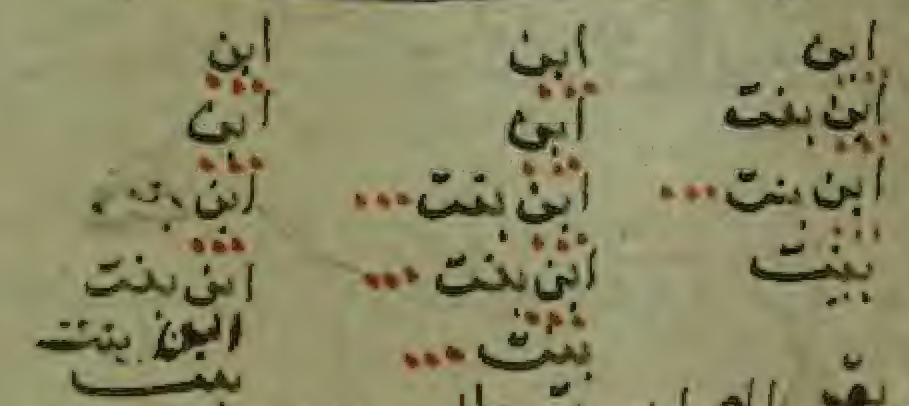 ابن
ابن بنت
ابن بنت
بنت
ابن
ابن
ابن بنت
ابن بنت
بنت
ابن
ابن
ابن بنت
ابن بنت
ابن بنت
بنت